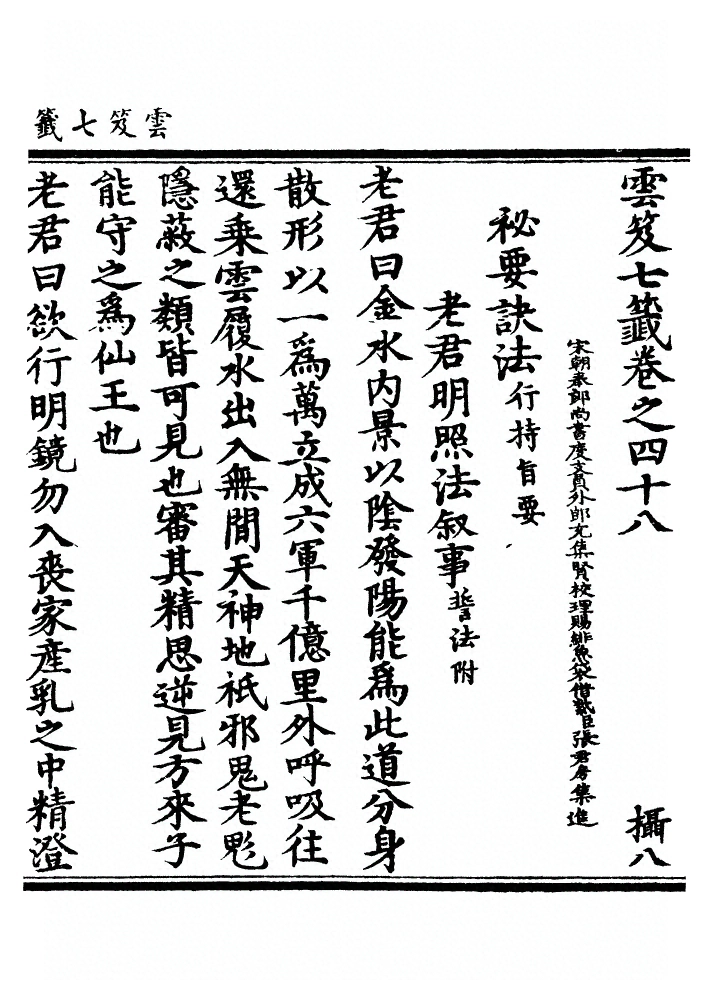 雲笈七籤
雲笈七籤卷之四十八　攝八
宋朝奉郎尚書度支員外郎充集賢校理賜緋魚袋借紫臣張君房集進
秘要訣法行持旨要
老君明照法叙事誓法附
老君曰金水内景以陰發陽能爲此道分身
散形以一爲萬立成六軍千億里外呼吸往
還乗雲履水出入無間天神地祇邪鬼老魅
隱蔽之類皆可見也審其精思逆見方來子
能守之爲仙王也
老君曰欲行明鏡勿入喪家産乳之中精澄